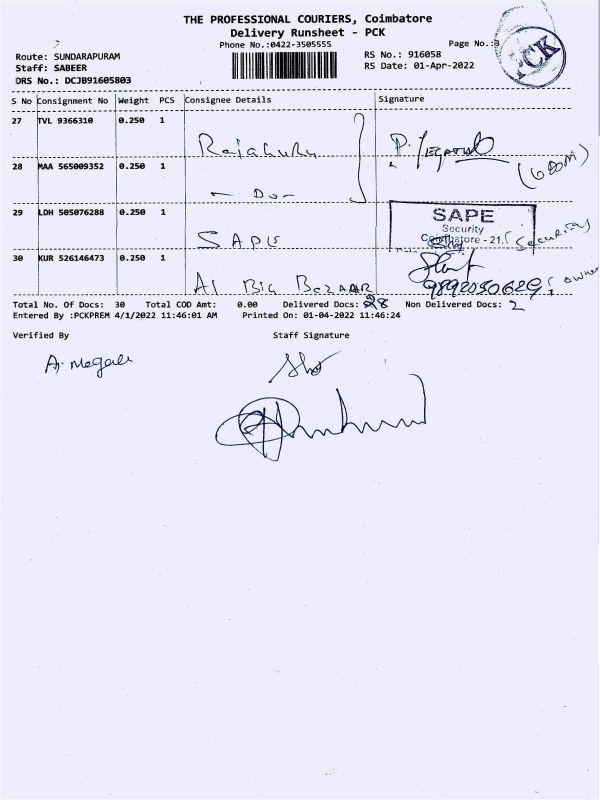 THE PROFESSIONAL COURIERS, Coimbatore
Delivery Runsheet - PCK
Phone No.:0422-3505555
Page No.:3
PCK
Route: SUNDARAPURAM
Staff: SABEER
DRS No.: DCJB91605803
RS No.: 916058
RS Date: 01-Apr-2022
S No Consignment No Weight PCS Consignee Details Signature
27 TVL 9366310 0.250 1 Rajaguru
28 MAA 565009352 0.250 1 - Do -
29 LDH 505076288 0.250 1 SAPE
SAPE
Security
Coimbatore - 21. (Security
30 KUR 526146473 0.250 1 Al Big Bazaar
(owner
Total No. Of Docs: 30 Total COD Amt: 0.00 Delivered Docs: 28 Non Delivered Docs: 2
Entered By :PCKPREM 4/1/2022 11:46:01 AM Printed On: 01-04-2022 11:46:24
Verified By Staff Signature